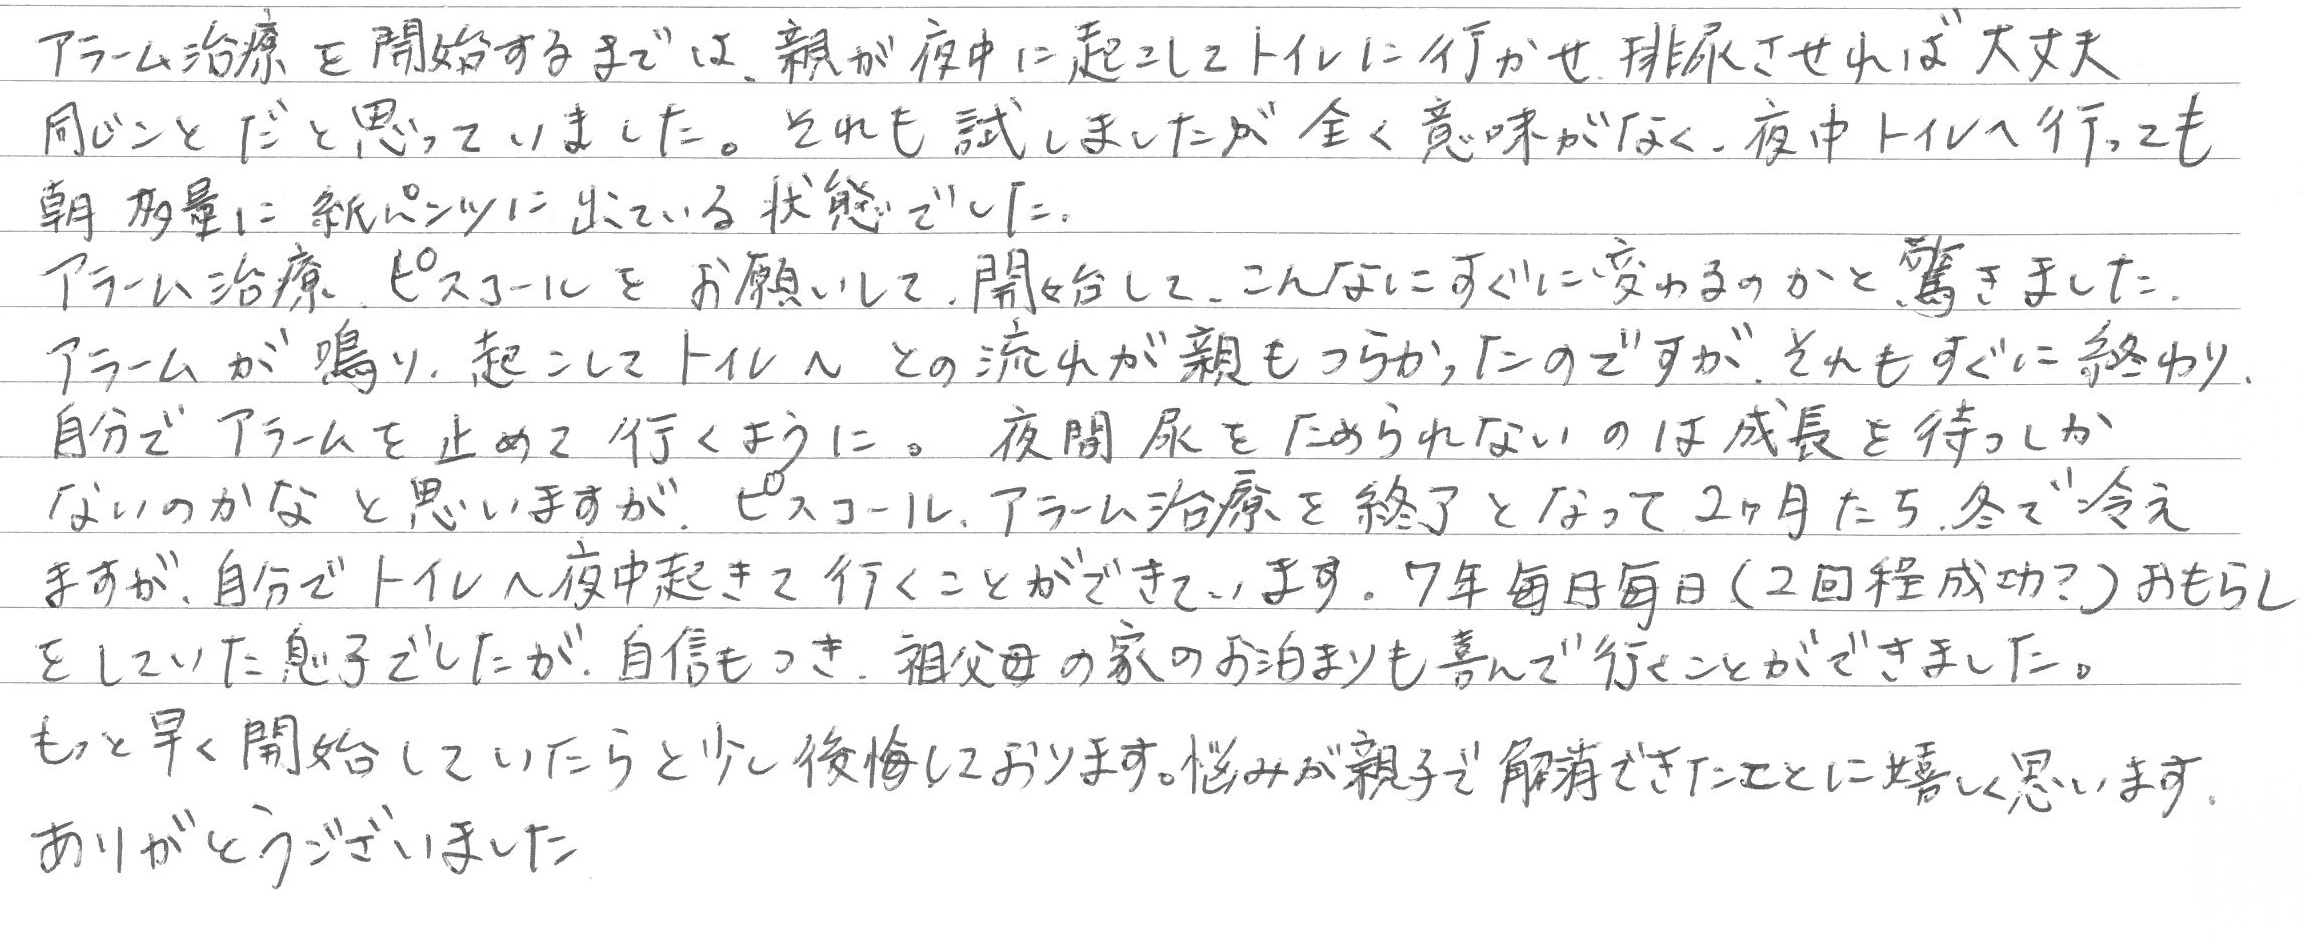 アラーム治療を開始するまでは、親が夜中に起こしてトイレに行かせ、排尿させれば大丈夫
同じことだと思っていました。それも試しましたが全く意味がなく、夜中トイレへ行っても
朝多量に紙パンツに出ている状態でした。
アラーム治療、ピスコールをお願いして、開始して、こんなにすぐに変わるのかと驚きました。
アラームが鳴り、起こしてトイレへとの流れが親もつらかったのですが、それもすぐに終わり、
自分でアラームを止めて行くように。夜間尿をためられないのは成長を待つしか
ないのかなと思いますが、ピスコール、アラーム治療を終了となって2ヶ月たち、冬で冷え
ますが、自分でトイレへ夜中起きて行くことができています。7年毎日毎日(2回程成功?)おもらし
をしていた息子でしたが、自信もつき、祖父母の家のお泊まりも喜んで行くことができました。
もっと早く開始していたらと少し後悔しております。悩みが親子で解消できたことに嬉しく思います。
ありがとうございました